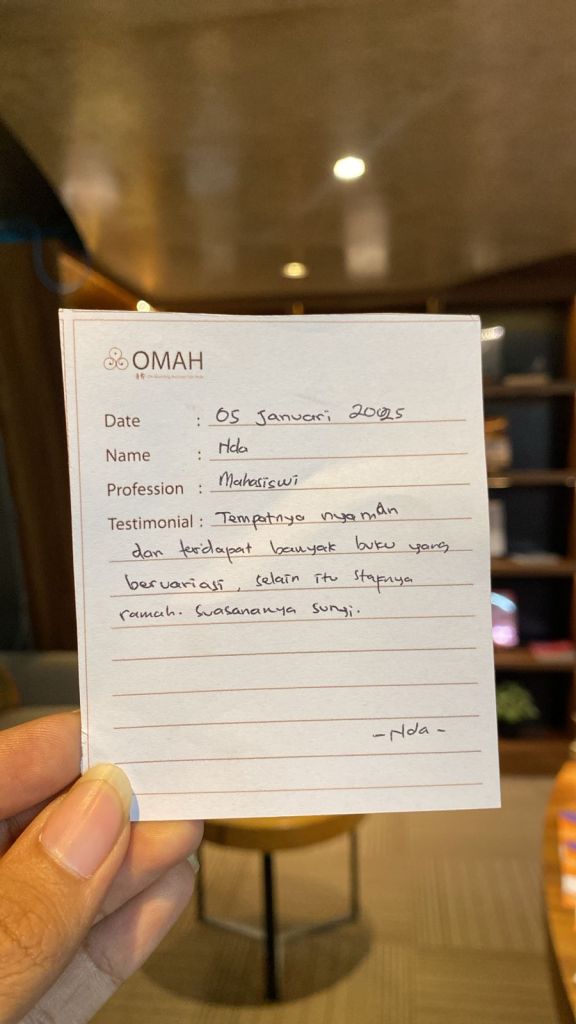 OMAH
Date : 05 Januari 2025
Name : Nda
Profession : Mahasiswi
Testimonial : Tempatnya nyaman
dan terdapat banyak buku yang
bervariasi, selain itu stafnya
ramah. Suasananya sunyi.
-Nda-